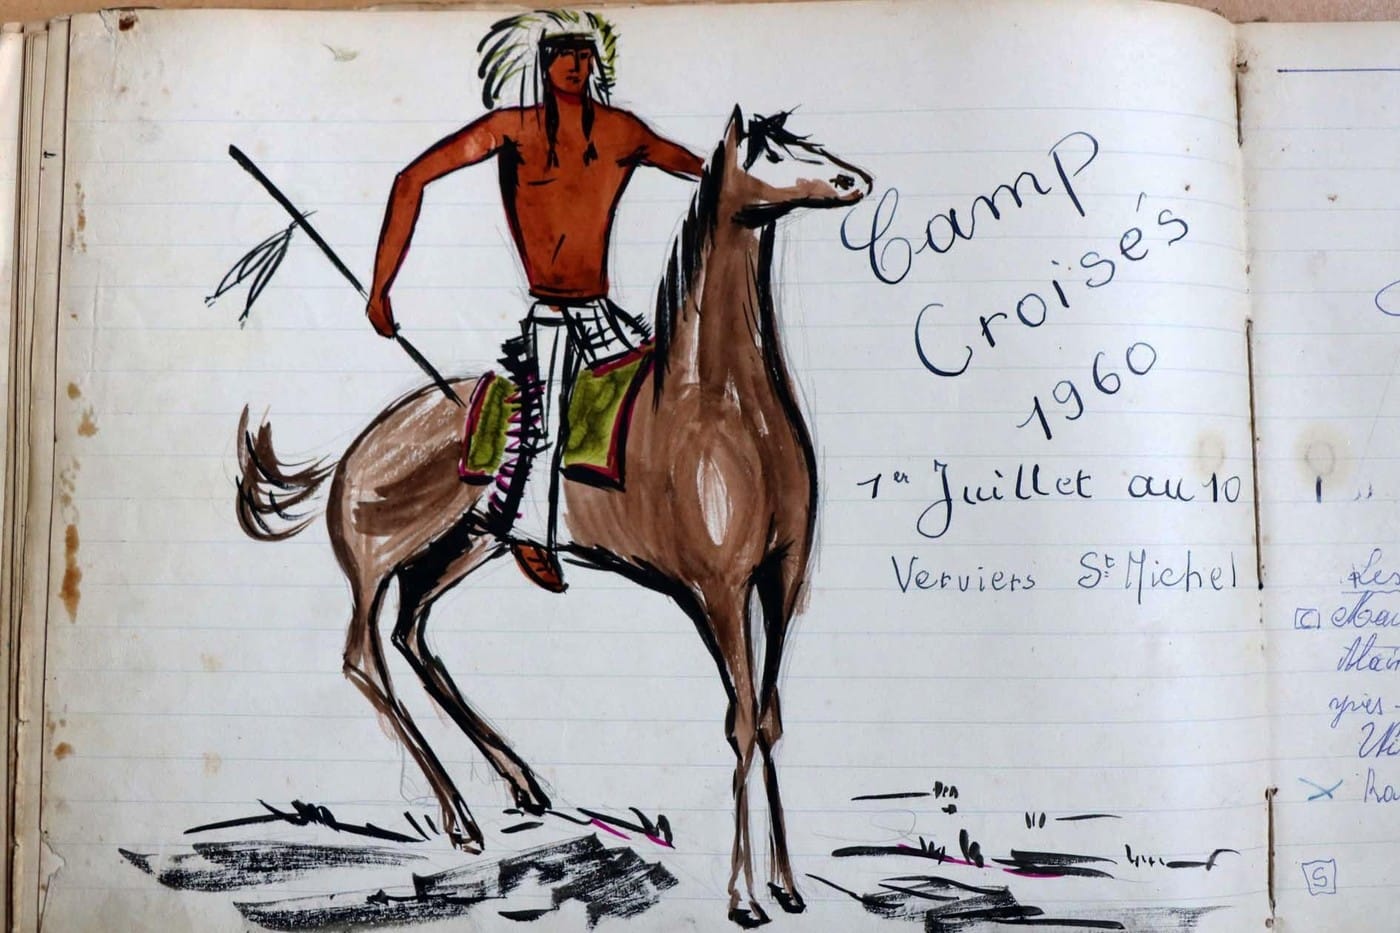 Camp
Croisés
1960
1er Juillet au 10
Verviers St Michel
Les
S